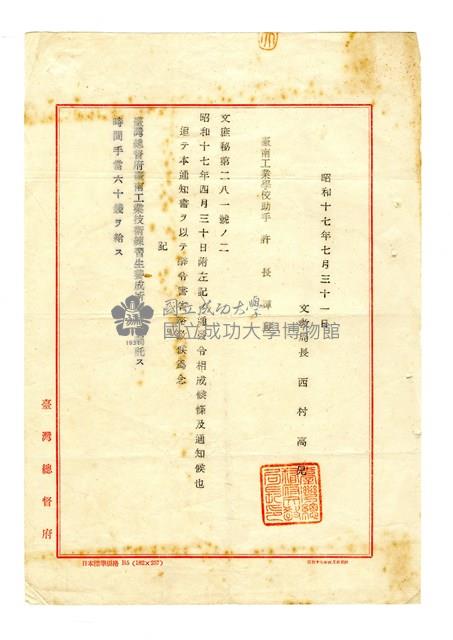 昭和十七年七月三十一日
文教局長 西村高兄
臺南工業學校助手 許長
文庶秘第二八一號ノ二
昭和十七年四月三十日附左記 通發令相成候條及通知候也
追テ本通知書ヲ以テ辭令書 候爲念
記
臺灣總督府臺南工業技術練習生養成所 囑託ス
時間手當六十錢ヲ給ス
臺灣總督府
臺灣總督府文教局長印
日本標準規格 B5 (182×257)
國立成功大學
國立成功大學博物館
1931